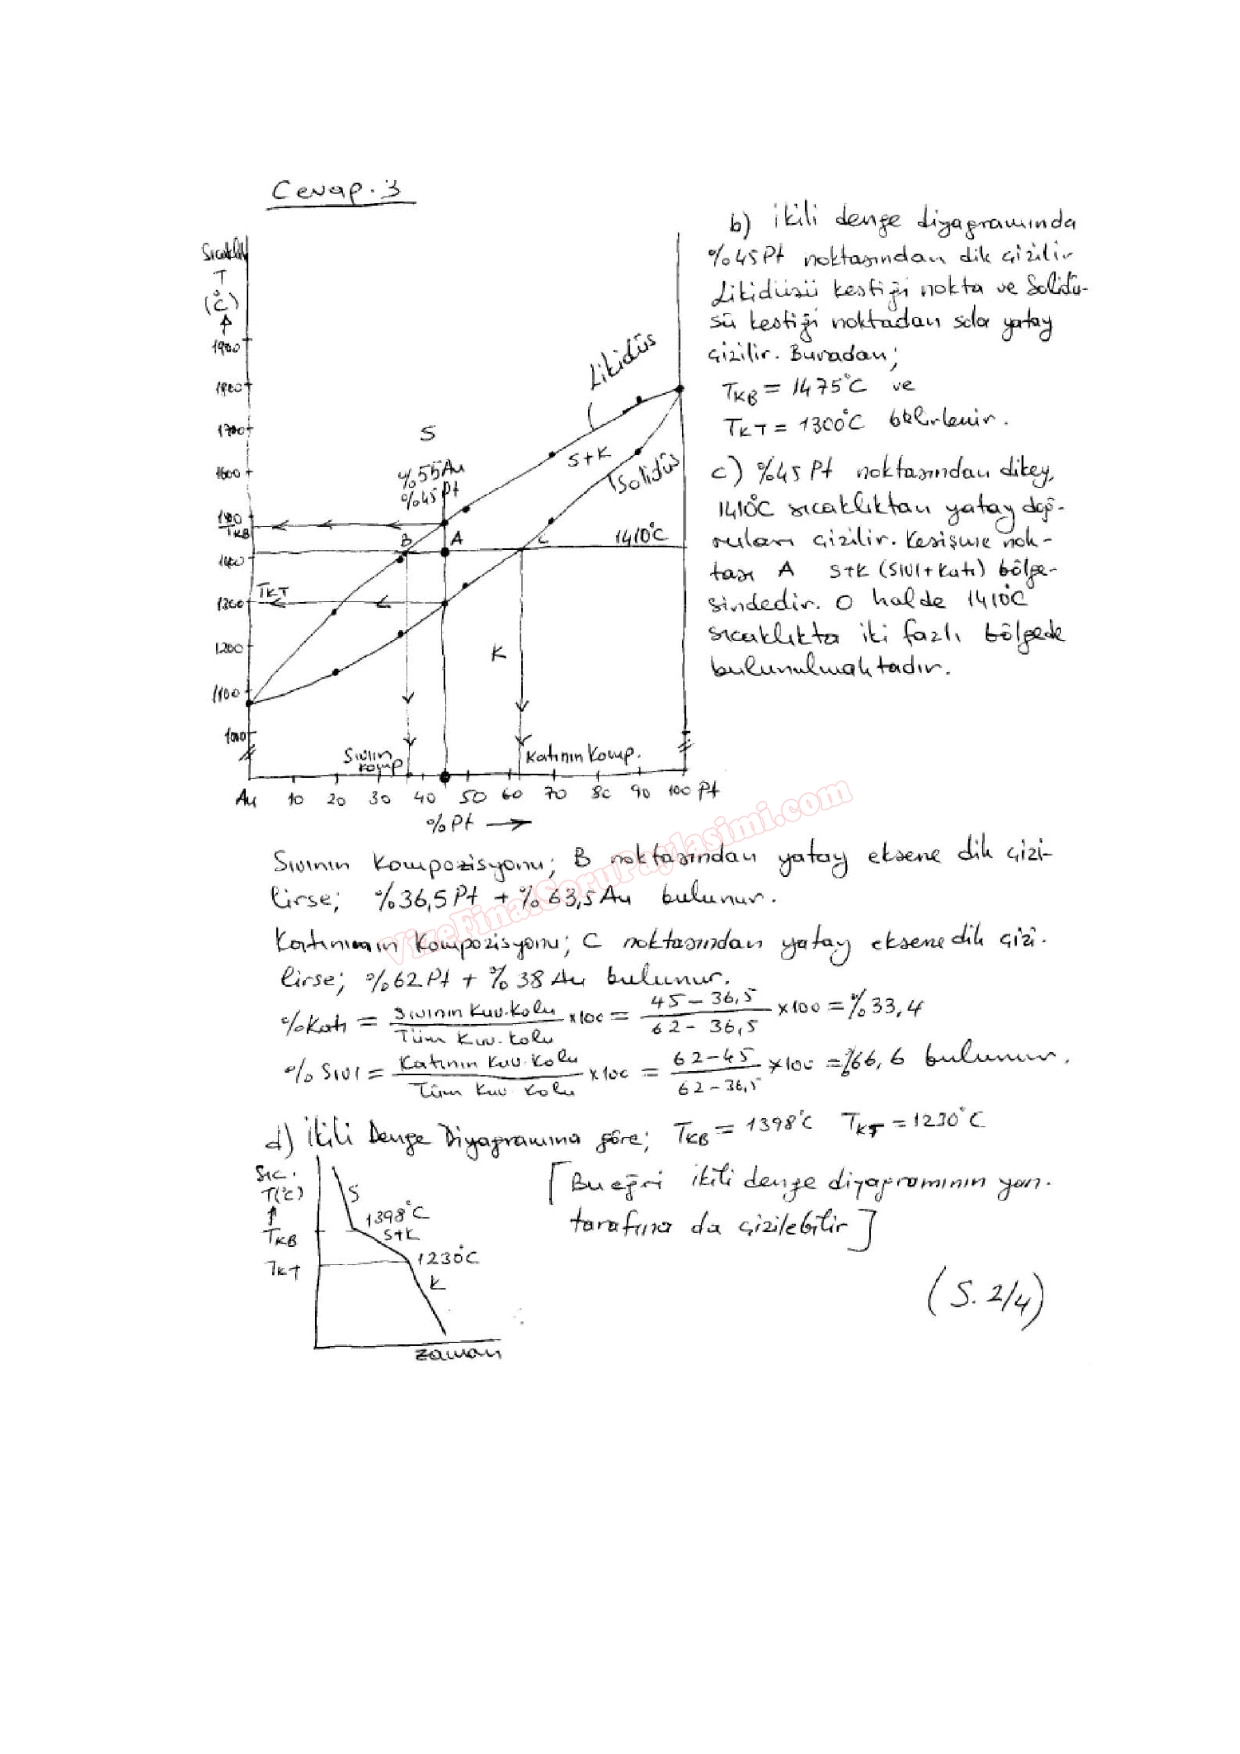 Cevap.3
Sıcaklık
T
(°C)
1900
1800
1700
1600
1500
TKB
1400
TKT
1300
1200
1100
1000
S
%55Au
%45Pt
Likidüs
S+K
Solidüs
B
A
C
1410°C
K
Sıvının
komp
Katının Komp.
Au 10 20 30 40 50 60 70 80 90 100 Pt
%Pt
b) İkili denge diyagramında
%45Pt noktasından dik çizilir
Likidüsü kestiği nokta ve Solidü-
sü kestiği noktadan sola yatay
çizilir. Buradan;
TKB = 1475°C ve
TKT = 1300°C belirlenir.
c) %45 Pt noktasından dikey,
1410°C sıcaklıktan yatay doğ-
ruları çizilir. Kesişme nok-
tası A S+K (Sıvı+Katı) bölge-
sindedir. O halde 1410°C
sıcaklıkta iki fazlı bölgede
bulunulmaktadır.
Sıvının Kompozisyonu; B noktasından yatay eksene dik çizi-
lirse; %36,5Pt + %63,5Au bulunur.
Katının Kompozisyonu; C noktasından yatay eksene dik çizi.
lirse; %62Pt + %38 Au bulunur.
%Katı = Sıvının Kuv.Kolu / Tüm Kuv.kolu x100 = 45-36,5 / 62-36,5 x100 = %33,4
%Sıvı = Katının Kuv.Kolu / Tüm Kuv Kolu x100 = 62-45 / 62-36,5 x100 = %66,6 bulunur.
d) İkili Denge Diyagramına göre; TKB = 1398°C TKT = 1230°C
Sıc.
T(°C)
TKB
TKT
S
1398°C
S+K
1230°C
K
zaman
[Bu eğri ikili denge diyagramının yan.
tarafına da çizilebilir]
(S. 2/4)
VizeFinalSoruPaylasimi.com